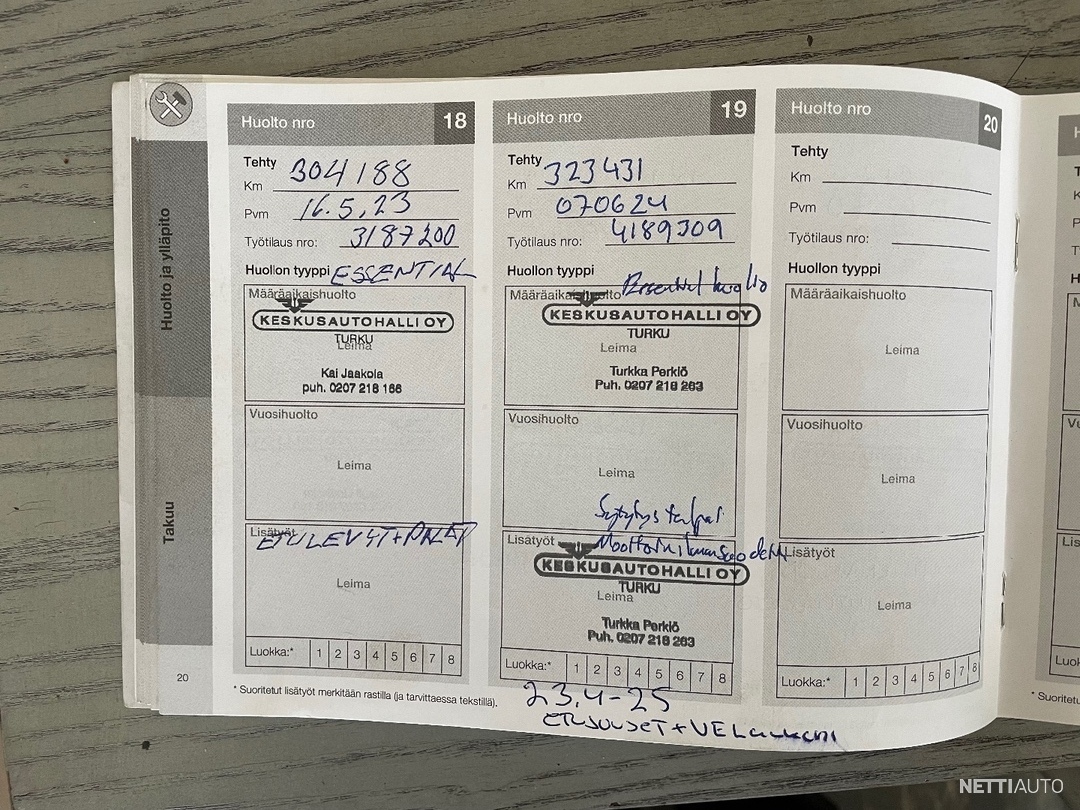 Huolto ja ylläpito
Takuu
Huolto nro 18
Tehty
Km 304188
Pvm 16.5,23
Työtilaus nro: 3187200
Huollon tyyppi ESSENTIAL
Määräaikaishuolto
KESKUSAUTOHALLI OY
TURKU
Leima
Kai Jaakola
puh. 0207 218 166
Vuosihuolto
Leima
Lisätyöt
ETULEVYT+PALAT
Leima
Luokka:* 1 2 3 4 5 6 7 8
20
* Suoritetut lisätyöt merkitään rastilla (ja tarvittaessa tekstillä).
Huolto nro 19
Tehty
Km 323431
Pvm 070624
Työtilaus nro: 4189309
Huollon tyyppi
Essential huolto
Määräaikaishuolto
KESKUSAUTOHALLI OY
TURKU
Leima
Turkka Perkiö
Puh. 0207 218 263
Vuosihuolto
Leima
Sytytystulpat
Lisätyöt Moottorinilmansuodatin
KESKUSAUTOHALLI OY
TURKU
Leima
Turkka Perkiö
Puh. 0207 218 263
Luokka:* 1 2 3 4 5 6 7 8
23.4-25
ETUJOUSET+
Huolto nro 20
Tehty
Km
Pvm
Työtilaus nro:
Huollon tyyppi
Määräaikaishuolto
Leima
Vuosihuolto
Leima
Lisätyöt
Leima
Luokka:* 1 2 3 4 5 6 7 8
* Suoritet
NETTIAUTO